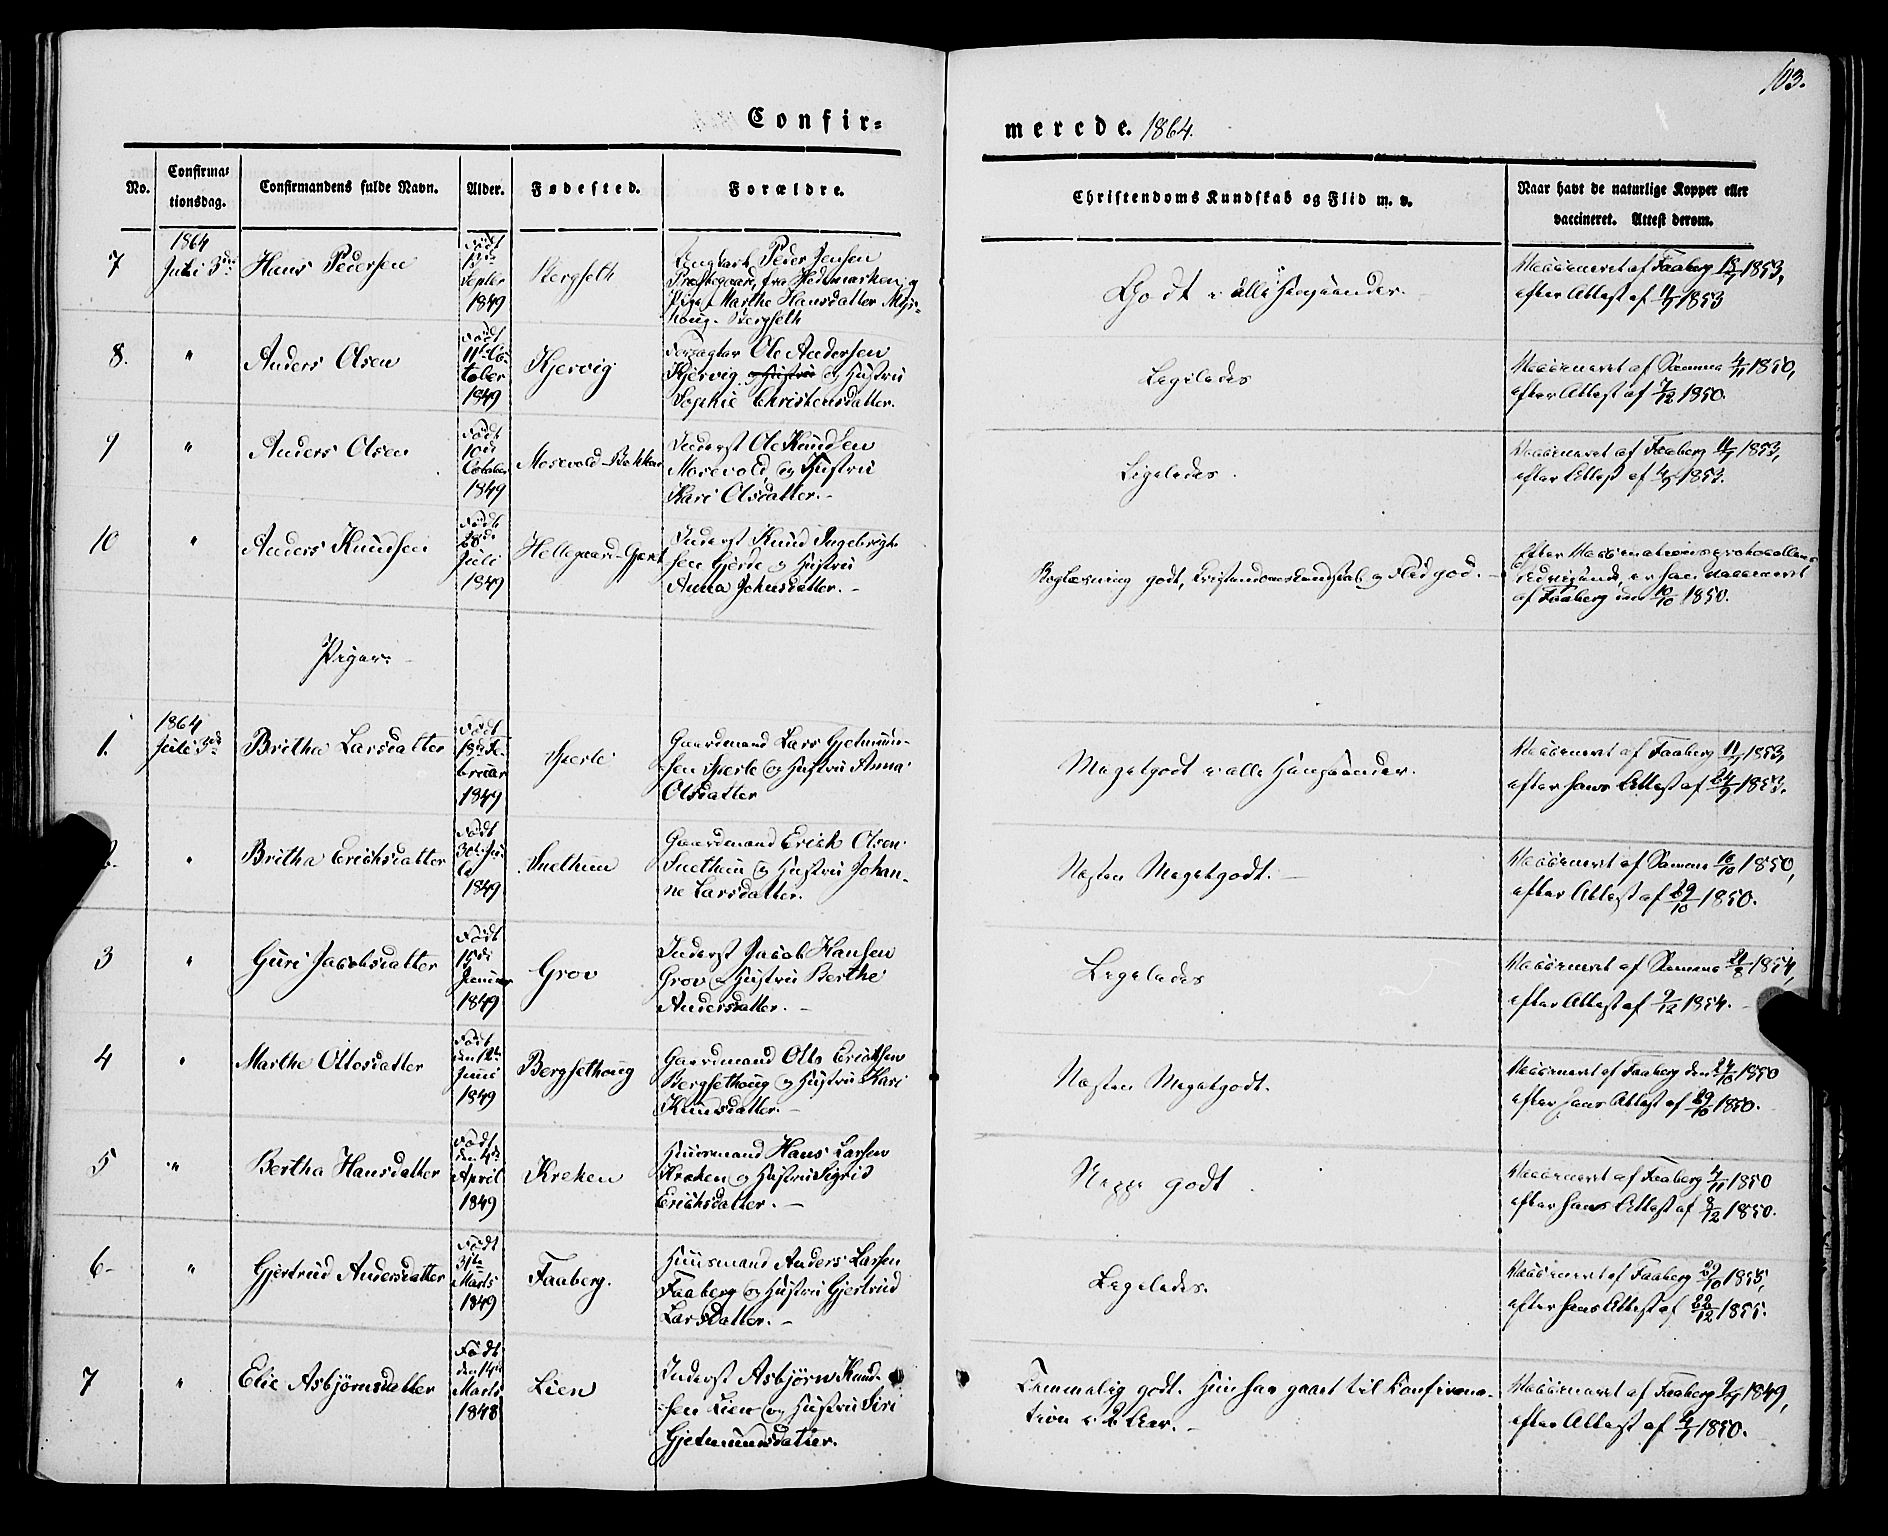 103.
Confir-
merede. 1864.
No.
Confirma-
tionsdag.
Confirmandens fulde Navn.
Alder.
Fødested.
Forældre.
Christendoms Kundskab og Flid m. v.
Naar havt de naturlige Kopper eller
vaccineret. Attest derom.
7
1864
Juli 3die
Hans Pedersen
Født
Septer
1849
Bergseth
Ungkarl Peder Jensen
Præstegaard, fra Hedemarken, og
Pige Marthe Hansdatter
houg-Bergseth
Godt i alle Henseender.
Vaccineret af Faaberg 1853,
efter Attest af 1853
8.
"
Anders Olsen
Født
11te Oc-
tober
1849
Kjervig
Forpagter Ole Andersen
Kjervig og Hustru
Sophie Christensdatter.
Ligeledes
Vaccineret af Samme 4/11 1850,
efter Attest af 7/12 1850.
9
"
Anders Olsen
Født
10de
October
1849
Mosevold-Bakken
Inderst Ole Knudsen
Mosevold, og Hustru
Kari Olsdatter.-
Ligeledes.
Vaccineret af Faaberg 1853,
efter Attest af 1853.
10
"
Anders Knudsen
Født
28de
Juli
1849
Hellegaard-Gjerde
Inderst Knud Ingebrigt-
sen Gjerde og Hustru
Anna Johnsdatter.-
Boglæsning godt, Kristendomskundskab og Flid god.-
Efter Vaccinationsprotocollens
Udvisende, er han vaccineret
af Faaberg den 10/10 1850.
Piger:
1.
1864
Juli 3die
Britha Larsdatter
Født
18de Fe-
bruar
1849
Sperle
Gaardmand Lars Gjetmund-
sen Sperle og Hustru Anna
Olsdatter
Megetgodt i alle Henseender.
Vaccineret af Faaberg 1853,
efter hans Attest af 1853.
"
Britha Erichsdatter
Født
30te Ju-
li
1849
Snethun
Gaardmand Erich Olsen
Snethun og Hustru Johan-
ne Larsdatter.
Næsten Megetgodt.-
Vaccineret af Samme 16/10 1850,
efter Attest af 29/10 1850.
3
"
Guri Jacobsdatter
Født
15de
Januar
1849
Grov
Inderst Jacob Hansen
Grov og Hustru Berthe
Andersdatter.-
Ligeledes
Vaccineret af Samme 21/8 1854,
efter Attest af 9/12 1854.-
4
"
Marthe Ottosdatter
Født
den 12te
Juni
1849
Bergsethoug
Gaardmand Otto Erichsen
Bergsethoug og Hustru Kari
Knudsdatter.-
Næsten Megetgodt.
Vaccineret af Faaberg den 24/10 1850
efter hans Attest af 29/10 1850.
5
"
Bertha Hansdatter
Født
den 4de
April
1849
Kreken
Huusmand Hans Larsen
Kreken og Hustru Sigrid
Erichsdatter.-
Neppe godt
Vaccineret af Faaberg 4/11 1850
efter hans Attest af 8/12 1850.
6-
"
Gjertrud Andersdatter
Født
31te
Marts
1849
Faaberg.
Huusmand Anders Larsen
Faaberg og Hustru Gjertrud
Larsdatter.-
Ligeledes.
Vaccineret af Faaberg 29/10 1855,
efter hans Attest af 22/12 1855.
7
"
Elie Asbjørnsdatter
Født
den 14de
Marts
1848
Lien
Inderst Asbjørn Knud-
sen Lien og Hustru Siri
Gjetmundsdatter.
Temmelig godt. Hun har gaaet til Konfirma-
tion i 2 Aar.-
Vaccineret af Faaberg 1849,
efter Attest af 1850.